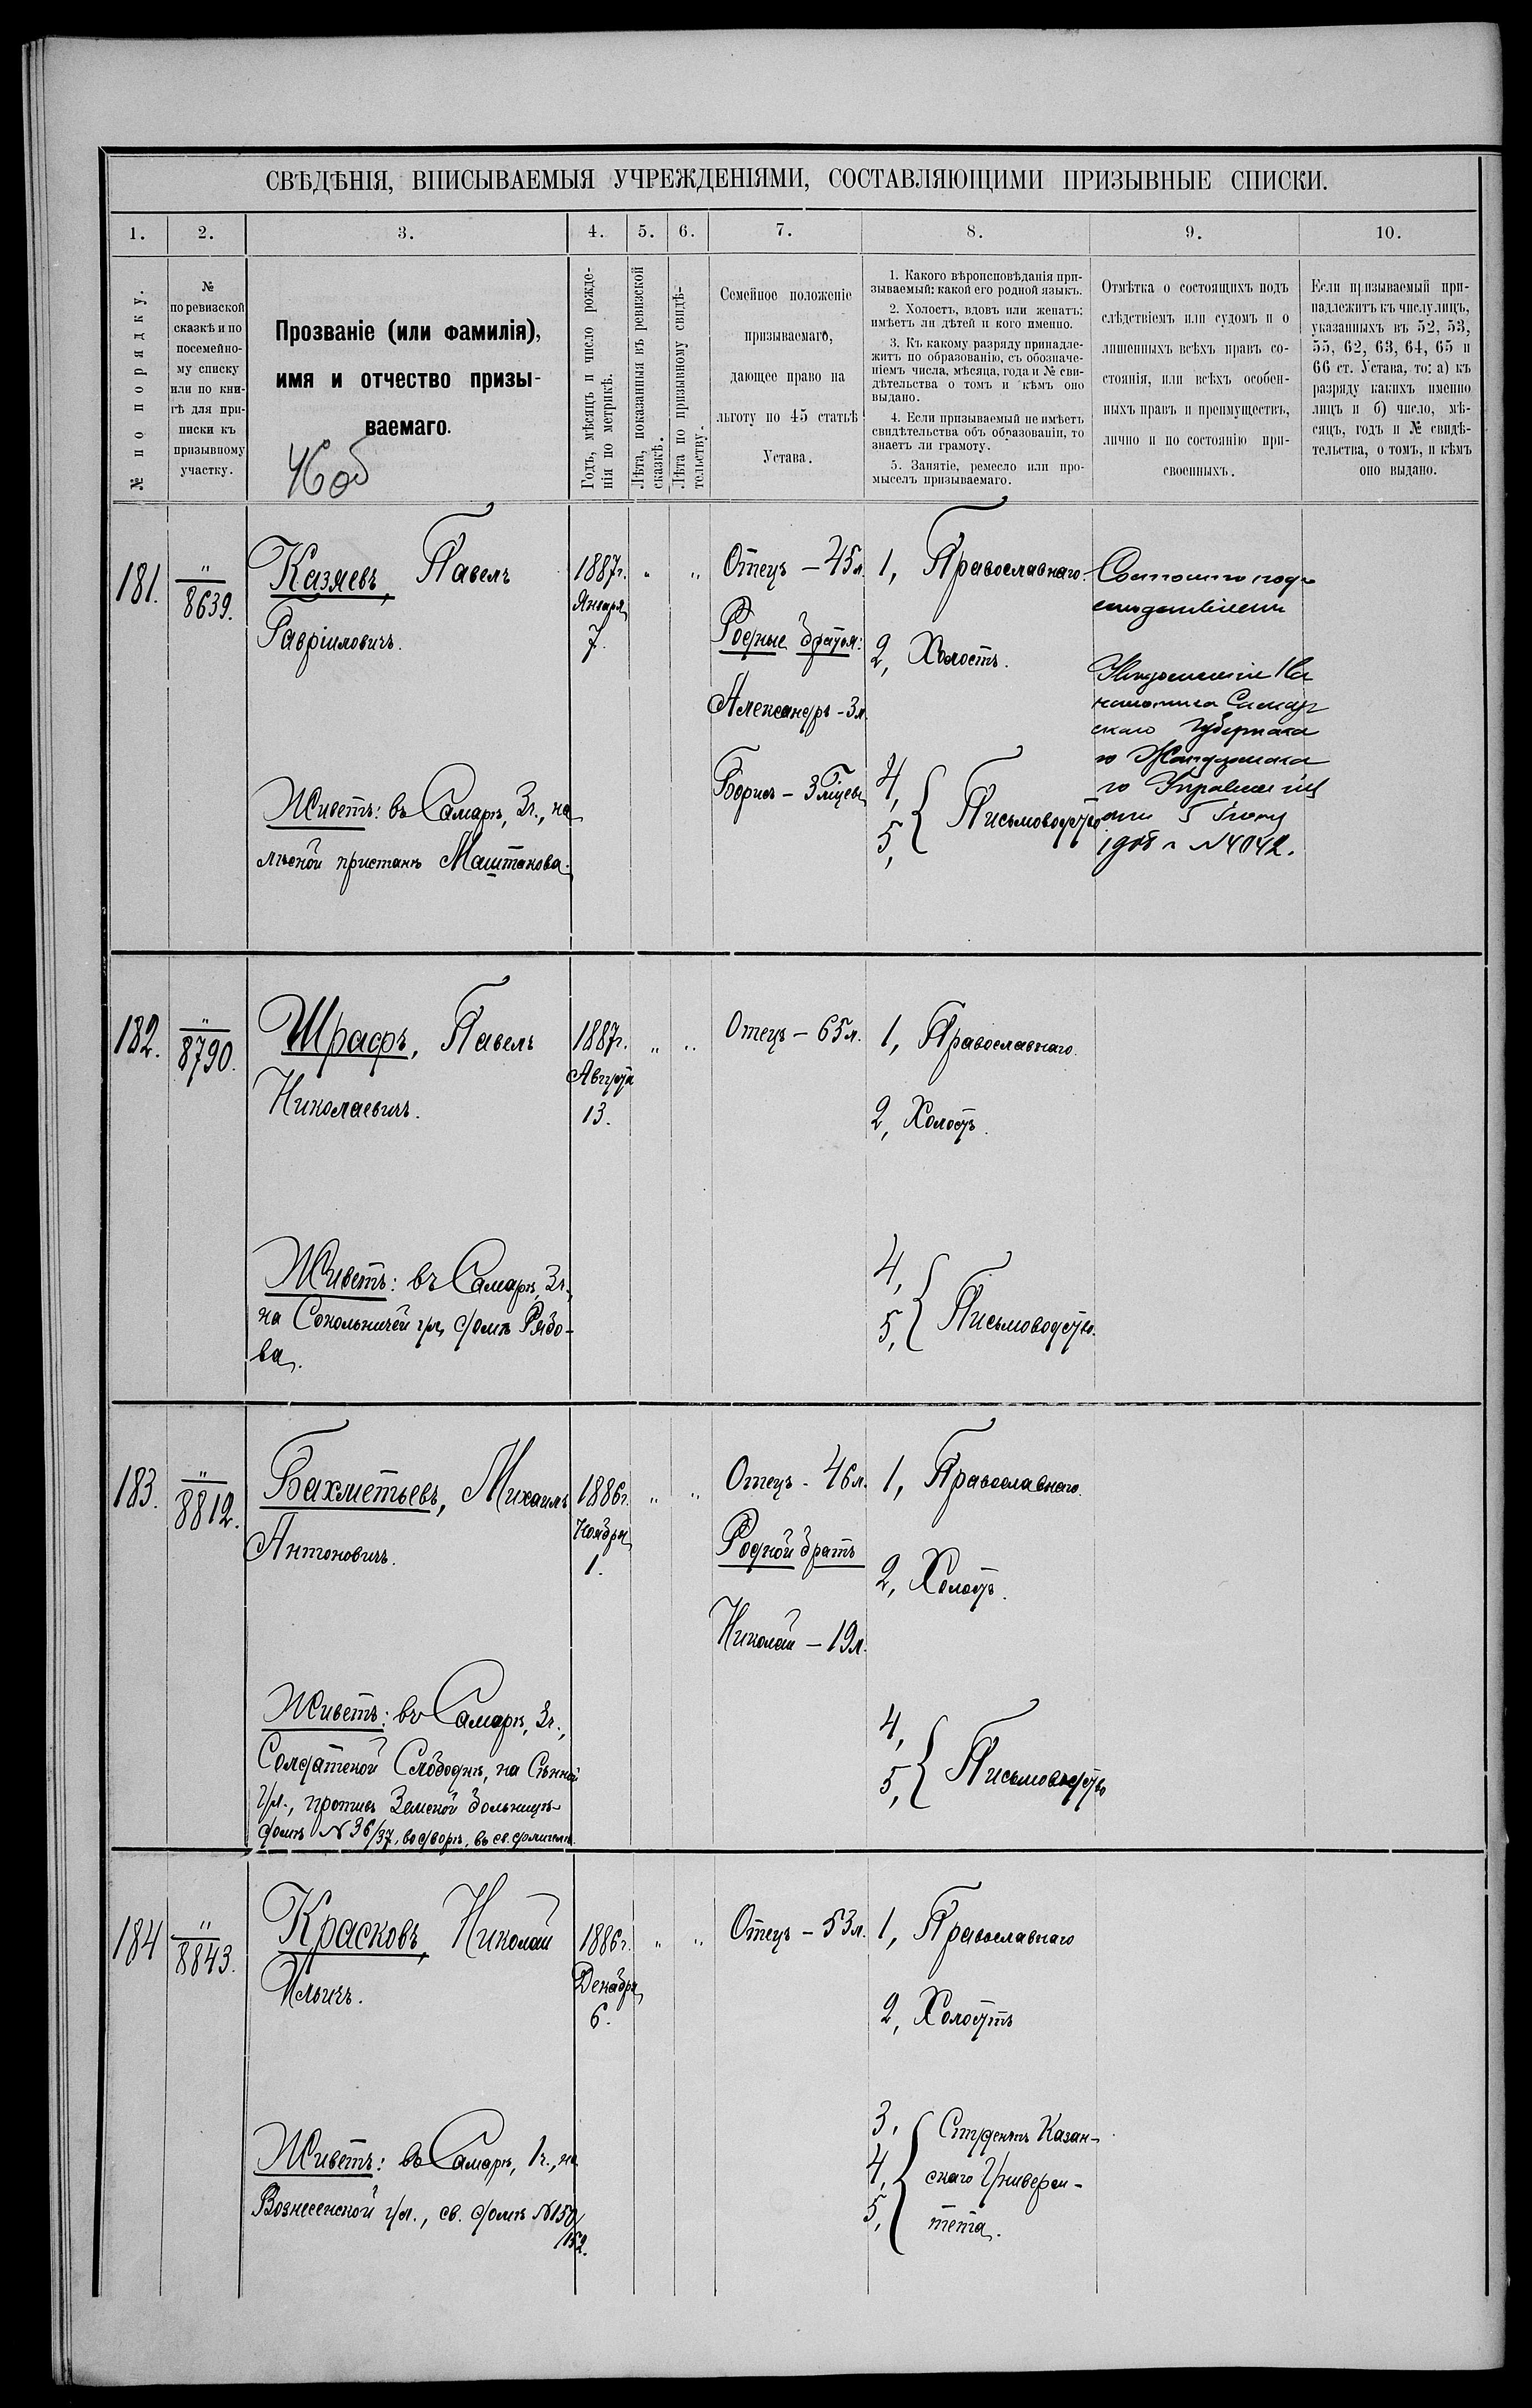 СВѢДѢНІЯ, ВПИСЫВАЕМЫЯ УЧРЕЖДЕНІЯМИ, СОСТАВЛЯЮЩИМИ ПРИЗЫВНЫЕ СПИСКИ.
1.
2.
3.
4.
5.
6.
7.
8.
9.
10.
№ по порядку.
№
по ревизской
сказкѣ и по
посемейно-
му списку
или по кни-
гѣ для при-
писки къ
призывному
участку.
Прозваніе (или фамилія),
имя и отчество призы-
ваемаго.
46об
Годъ, мѣсяцъ и число рожде-
нія по метрикѣ.
Лѣта, показанныя въ ревизской
сказкѣ.
Лѣта по призывному свидѣ-
тельству.
Семейное положеніе
призываемаго,
дающее право на
льготу по 45 статьѣ
Устава.
1. Какого вѣроисповѣданія при-
зываемый: какой его родной языкъ.
2. Холостъ, вдовъ или женатъ:
имѣетъ ли дѣтей и кого именно.
3. Къ какому разряду принадле-
житъ по образованію, съ обозначе-
ніемъ числа, мѣсяца, года и № сви-
дѣтельства о томъ и кѣмъ оно
выдано.
4. Если призываемый не имѣетъ
свидѣтельства объ образованіи, то
знаетъ ли грамоту.
5. Занятіе, ремесло или про-
мыселъ призываемаго.
Отмѣтка о состоящихъ подъ
слѣдствіемъ или судомъ и о
лишенныхъ всѣхъ правъ со-
стоянія, или всѣхъ особен-
ныхъ правъ и преимуществъ,
лично и по состоянію при-
своенныхъ.
Если призываемый при-
надлежитъ къ числу лицъ,
указанныхъ въ 52, 53,
55, 62, 63, 64, 65 и
66 ст. Устава, то: а) къ
разряду какихъ именно
лицъ и б) число, мѣ-
сяцъ, годъ и № свидѣ-
тельства, о томъ, и кѣмъ
оно выдано.
181.
"
8639.
Казяевъ, Павелъ
Гавріиловичъ.
Живетъ: въ Самарѣ, 3ч., на
лѣсной пристанѣ Маштакова.
1887г.
Января
7.
"
"
Отецъ – 45л.
Родные братья:
Александръ – 3л.
Борисъ – 3 мѣсяцевъ
1, Православнаго.
2, Холостъ.
4,
5, Письмоводство
Состоитъ подъ
слѣдствіемъ
Отношеніе На
чальника Самар
скаго Губернска
го Жандармска
го Управленія
отъ 5 Іюня
1908 г №4042.
182.
"
8790.
Шрафъ, Павелъ
Николаевичъ.
Живетъ: въ Самарѣ, 3ч.,
на Сокольничей ул, домъ Рядо-
ва.
1887г.
Августа
13.
"
"
Отецъ – 65л.
1, Православнаго.
2, Холостъ.
4,
5, Письмоводство.
183.
"
8812.
Бахметьевъ, Михаилъ
Антоновичъ.
Живетъ: въ Самарѣ, 3ч.,
Солдатской Слободкѣ, на Сѣнной
ул., противъ Земской больницы-
домъ №36/37, во дворѣ, въ св. флигелѣ.
1886г.
Ноября
1.
"
"
Отецъ - 46л.
Родной братъ
Николай – 19л.
1, Православнаго.
2, Холостъ.
4,
5, Письмоводство
184
"
8843.
Красковъ, Николай
Ильичъ.
Живетъ: въ Самарѣ, 1ч., на
Вознесенской ул., св. домъ №150/
152.
1886г.
Декабря
6.
"
"
Отецъ – 53л.
1, Православнаго
2, Холостъ
3, Студентъ Казан-
4, скаго Универси-
5, тета.